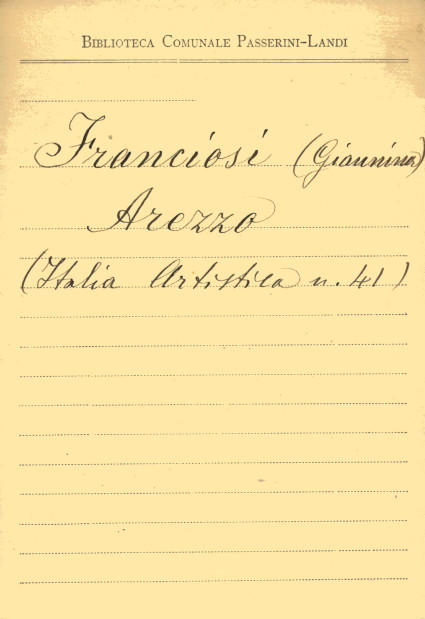 BIBLIOTECA COMUNALE PASSERINI-LANDI
Franciosi (Giannina)
Arezzo
(Italia Artistica n. 41)